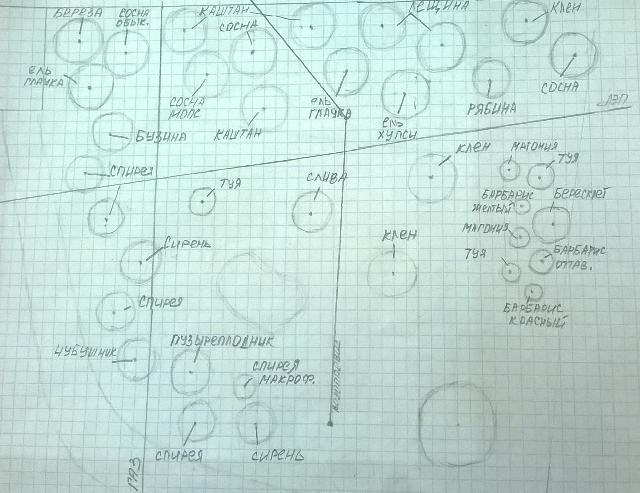 БЕРЕЗА
СОСНА
ОБЫК.
КАШТАН
СОСНА
ЛЕЩИНА
КЛЕН
ЕЛЬ
ГЛАУКА
СОСНА
МОПС
КАШТАН
ЕЛЬ
ГЛАУКА
ЕЛЬ
ХУПСИ
РЯБИНА
СОСНА
ЛЭП
БУЗИНА
СПИРЕЯ
ТУЯ
СЛИВА
КЛЕН
МАГОНИЯ
ТУЯ
БАРБАРИС
ЖЕЛТЫЙ
БЕРЕСКЛЕТ
МАГОНИЯ
СИРЕНЬ
КЛЕН
ТУЯ
БАРБАРИС
ОТТАВ.
СПИРЕЯ
БАРБАРИС
КРАСНЫЙ
ЧУБУШНИК
ПУЗЫРЕПЛОДНИК
СПИРЕЯ
МАКРОФ.
СПИРЕЯ
СИРЕНЬ
ГАЗ